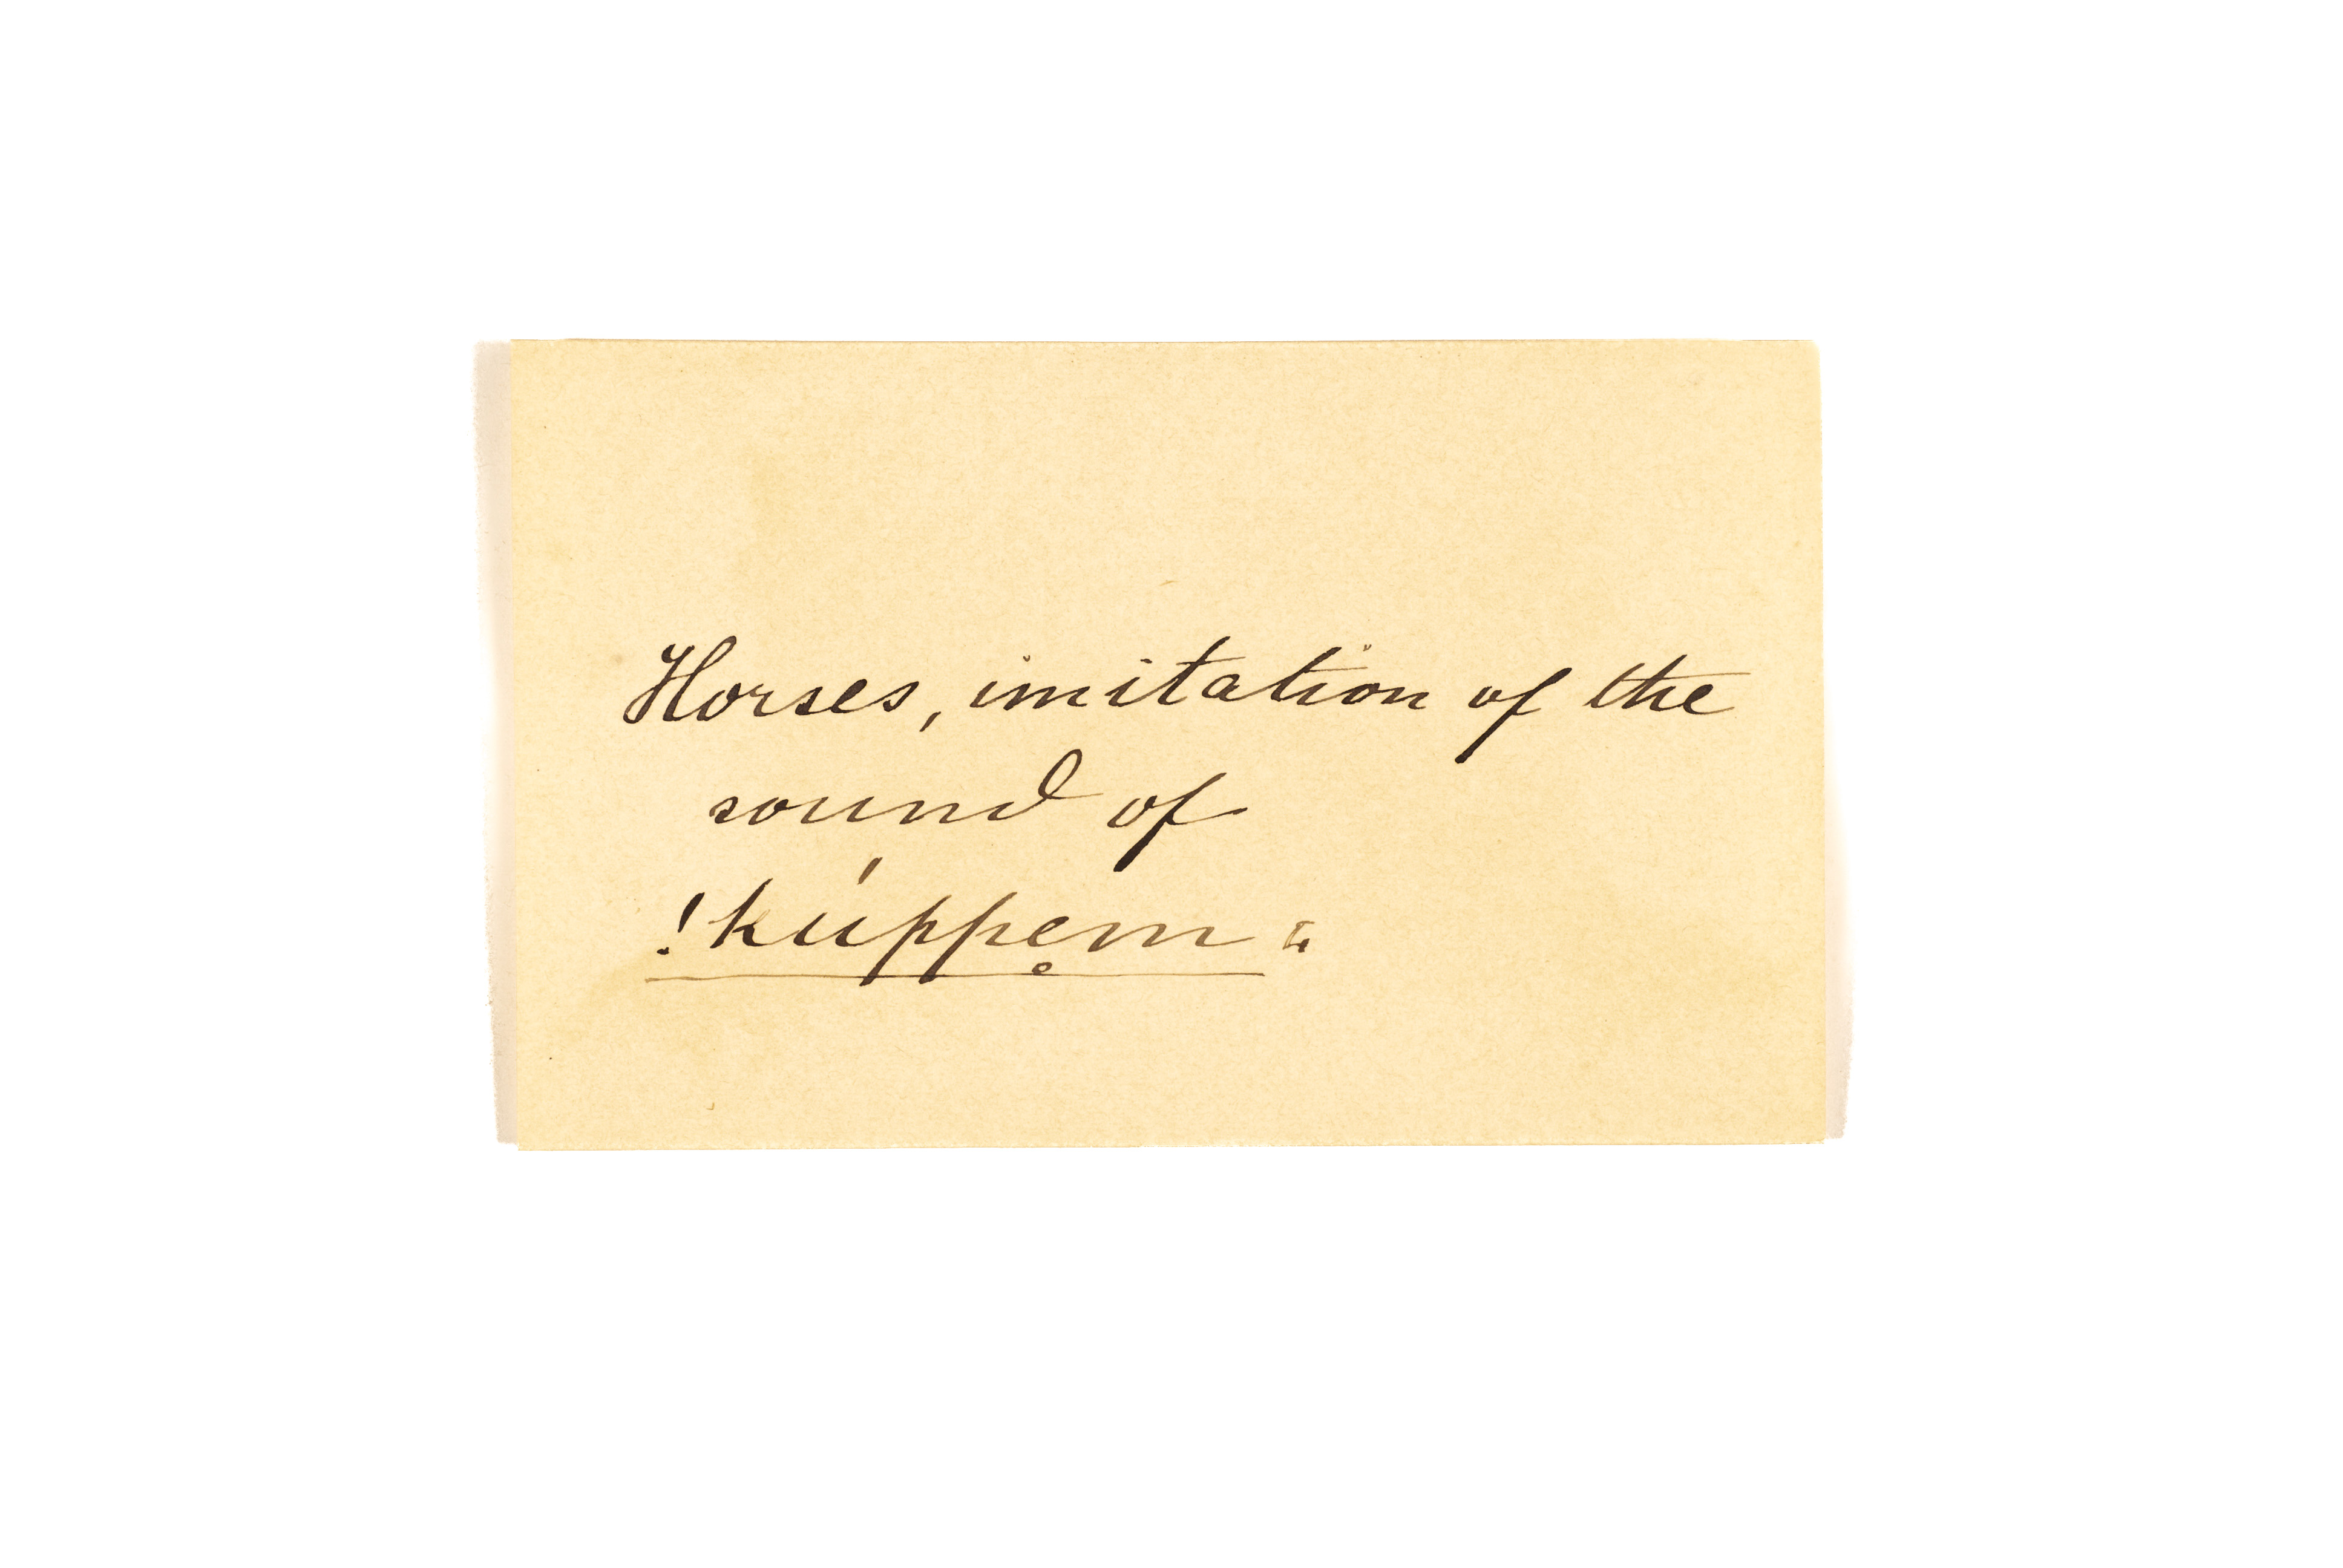 Horses, imitation of the
sound of
!kúppe̥m